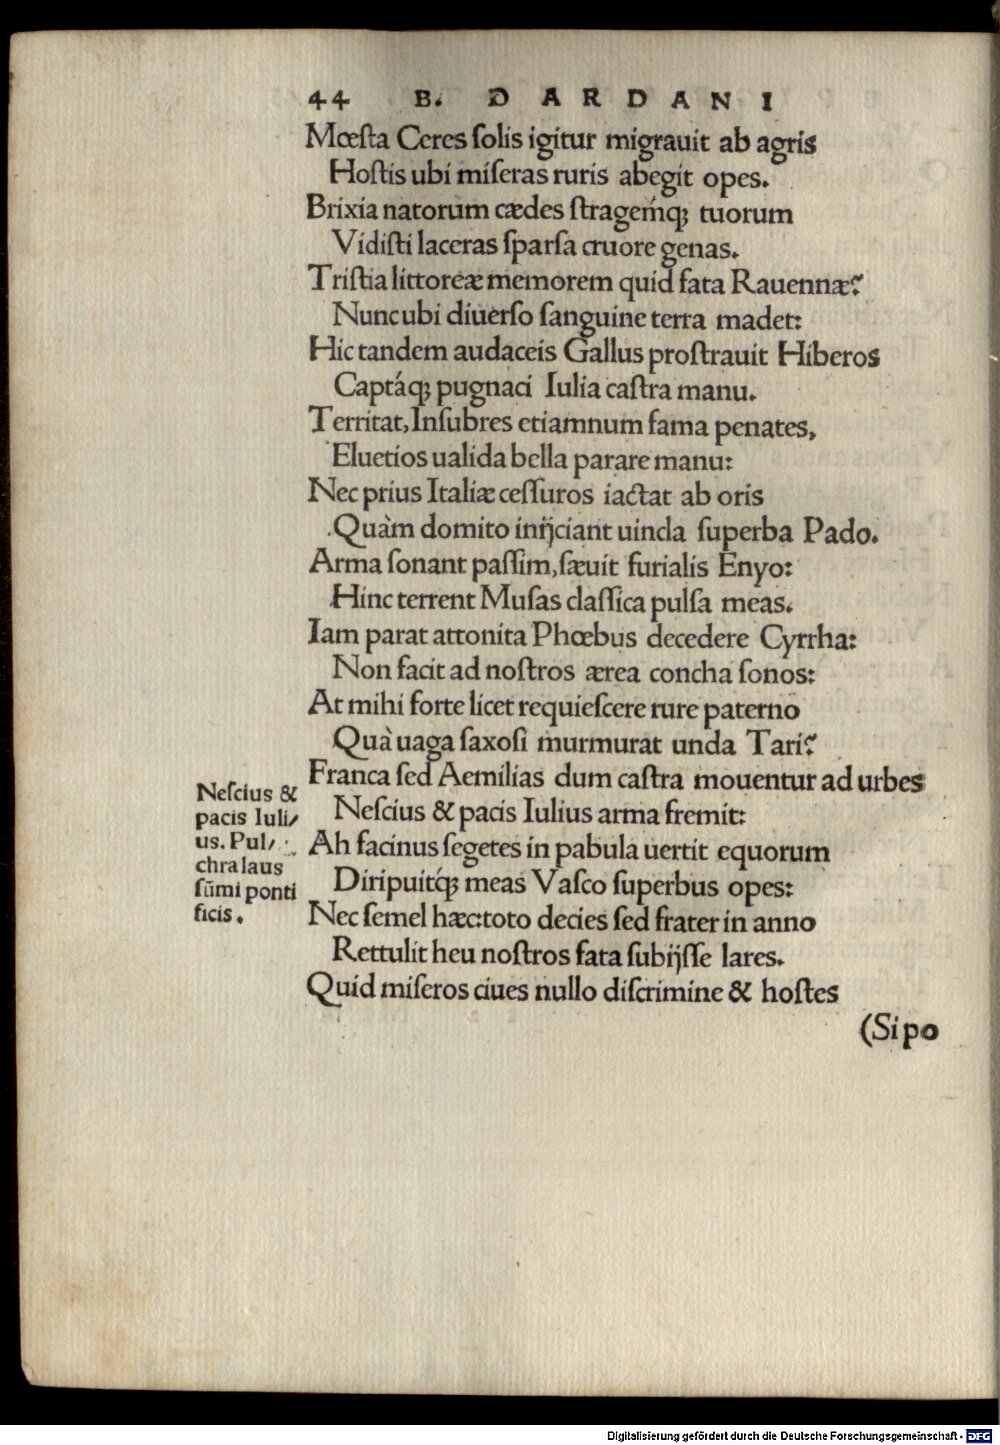 44 B. DARDANI
Mœſta Ceres ſolis igitur migrauit ab agris
Hoſtis ubi miſeras ruris abegit opes.
Brixia natorum cædes ſtrageḿq; tuorum
Vidiſti laceras ſparſa cruore genas.
Triſtia littoreæ memorem quid fata Rauennæ?
Nunc ubi diuerſo ſanguine terra madet:
Hic tandem audaceis Gallus proſtrauit Hiberos
Captáq; pugnaci Iulia caſtra manu.
Territat, Inſubres etiamnum fama penates,
Eluetios ualida bella parare manu:
Nec prius Italiæ ceſſuros iactat ab oris
Quàm domito inijciant uincla ſuperba Pado.
Arma ſonant paſſim, ſæuit furialis Enyo:
Hinc terrent Muſas claſſica pulſa meas.
Iam parat attonita Phœbus decedere Cyrrha:
Non facit ad noſtros ærea concha ſonos:
At mihi forte licet requieſcere rure paterno
Quà uaga ſaxoſi murmurat unda Tari?
Franca ſed Aemilias dum caſtra mouentur ad urbes
Neſcius & pacis Iulius arma fremit:
Ah facinus ſegetes in pabula uertit equorum
Diripuit́q; meas Vaſco ſuperbus opes:
Nec ſemel hæc: toto decies ſed frater in anno
Rettulit heu noſtros fata ſubijſſe lares.
Quid miſeros ciues nullo diſcrimine & hoſtes
(Si po
Neſcius &
pacis Iuli/
us. Pul/
chra laus
ſũmi ponti
ficis.
Digitalisierung gefördert durch die Deutsche Forschungsgemeinschaft - DFG